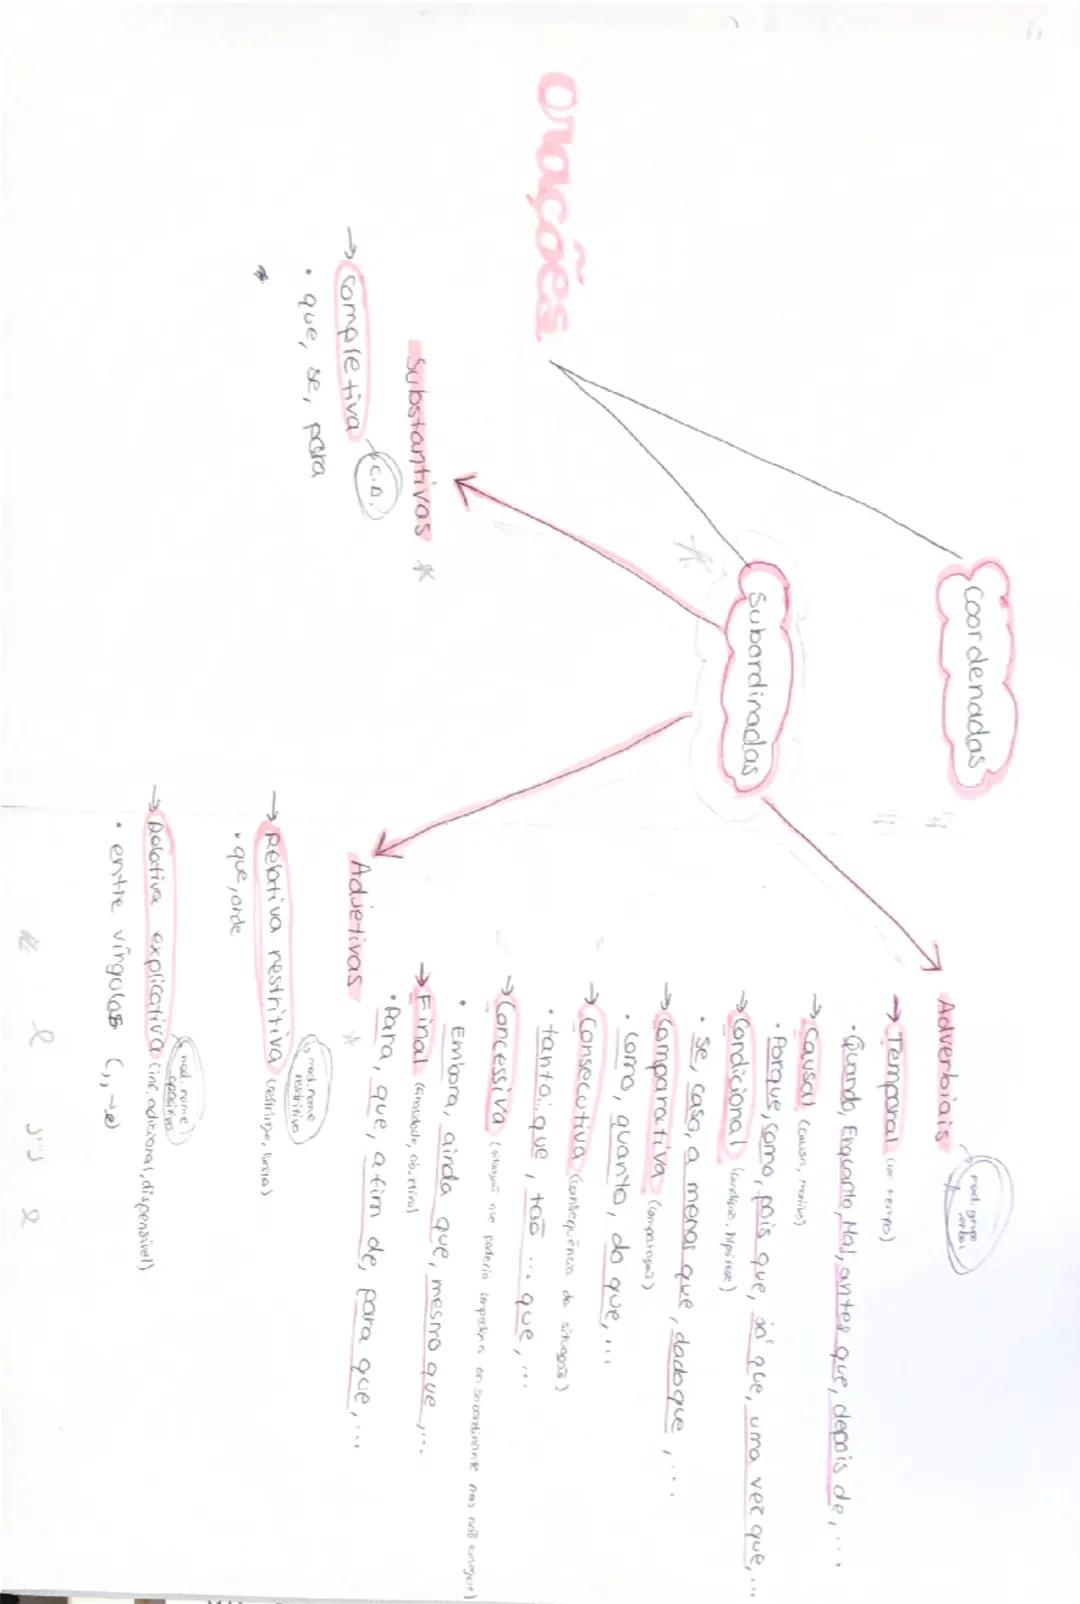 Orações
Coordenadas
Subordinadas
Adverbiais
mod. grupo
verbal
→ Temporal (ver tempo)
• Quando, Enquanto, Mal, antes que, depois de, ...
→ Causal (causa, motivo)
• Porque, como, pois que, já que, uma vez que, ...
→ Condicional (condição, hipótese)
• Se, caso, a menos que, dado que, ...
→ Comparativa (comparação)
• Como, quanto, do que, ...
→ Consecutiva (consequência da situação)
• tanto... que, tão ... que, ...
→ Concessiva (situação que poderia impedir a subordinante mas não consegue)
• Embora, ainda que, mesmo que, ...
→ Final (finalidade, objetivo)
• Para, que, a fim de, para que, ...
Substantivas *
→ Completiva
C.D.
• que, se, para
Adjetivas *
→ Relativa restritiva (restringe, limita)
mod. nome
restritivo
• que, onde
→ Relativa explicativa (inf. adicional, dispensível)
mod. nome
apositivo
• entre vírgulas (, -e)